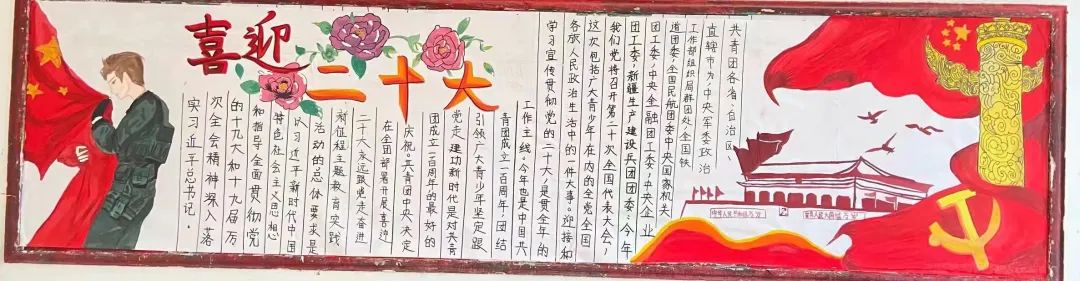 喜迎
二十大
共青团各省、自治区、
直辖市为中央军委政治
工作部组织局群团处全国铁
道团委,全国民航团委中央国家机关
团工委,中央金融团工委,中央企业
团工委,新疆生产建设兵团团委:今年
我们党将召开第二十次全国代表大会,
这次包括广大青少年在内的全党全国
各族人民政治生活中的一件大事。迎接和
学习宣传贯彻党的二十大,是贯全年的
工作主线。今年也是中国共
青团成立一百周年,团结
引领广大青少年坚定跟
党走建功新时代是对共青
团成立一百周年的最好的
庆祝。共青团中央决定
在全团部署开展喜迎
二十大永远跟党走奋进
新征程主题教育实践
活动的总体要求是
以习近平新时代中国
特色社会主义思想
和指导全面贯彻党
的十九大和十九届历
次全会精神深入落
实习近平总书记.